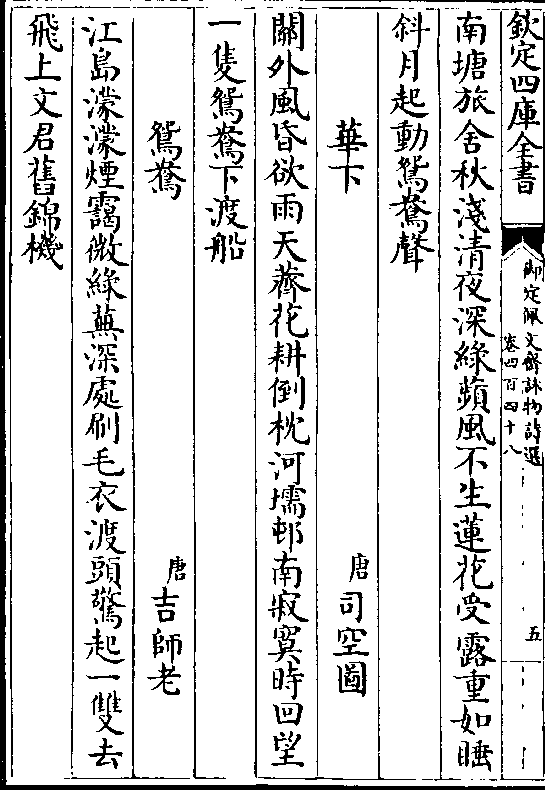 欽定四庫全書
御定佩文齋詠物詩選
卷四百四十八
五
南塘旅舍秋淺清夜深綠蘋風不生蓮花受露重如睡
斜月起動鴛鴦聲
華下
唐司空圖
關外風昏欲雨天薺花耕倒枕河壖邨南寂寞時回望
一隻鴛鴦下渡船
鴛鴦
唐吉師老
江島濛濛煙靄微綠蕪深處刷毛衣渡頭驚起一雙去
飛上文君舊錦機